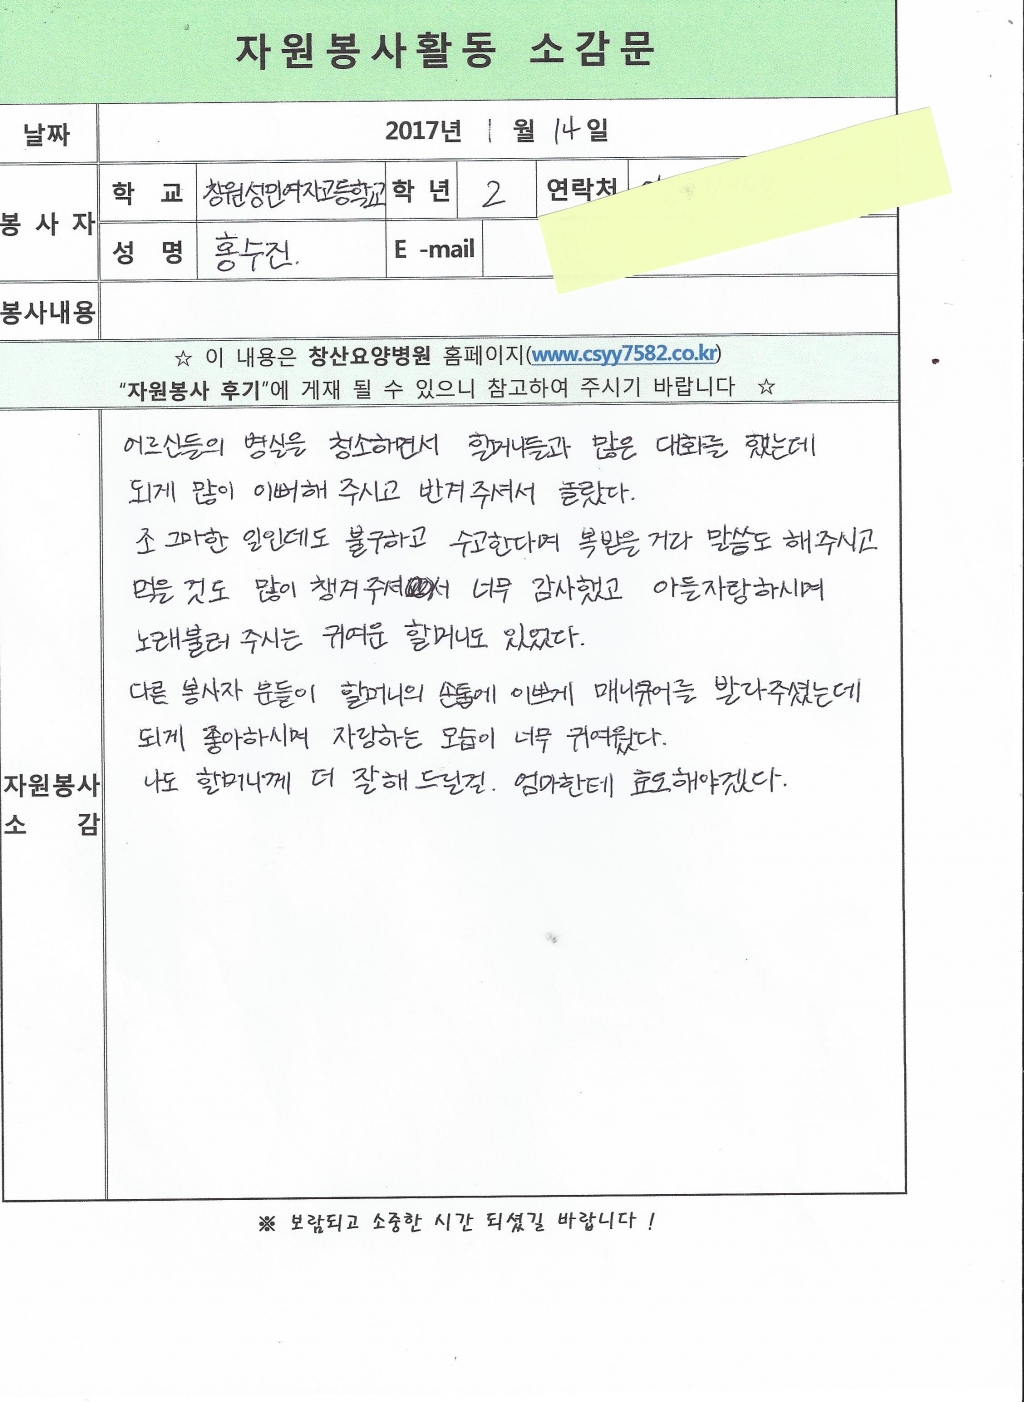 자원봉사활동 소감문
날짜 2017년 1 월 14일
봉 사 자
학 교 창원성민여자고등학교 학 년 2 연락처
성 명 홍수진. E -mail
봉사내용
☆ 이 내용은 창산요양병원 홈페이지(www.csyy7582.co.kr)
“자원봉사 후기”에 게재 될 수 있으니 참고하여 주시기 바랍니다 ☆
어르신들의 병실을 청소하면서 할머니들과 많은 대화를 했는데
되게 많이 이뻐해 주시고 반겨주셔서 놀랐다.
조그마한 일인데도 불구하고 수고한다며 복받을거라 말씀도 해주시고
먹을 것도 많이 챙겨주셔서 너무 감사했고 아들자랑하시며
노래불러 주시는 귀여운 할머니도 있었다.
다른 봉사자 분들이 할머니의 손톱에 이쁘게 매니큐어를 발라주셨는데
되게 좋아하시며 자랑하는 모습이 너무 귀여웠다.
나도 할머니께 더 잘해드릴걸. 엄마한테 효도해야겠다.
자원봉사
소 감
※ 보람되고 소중한 시간 되셨길 바랍니다 !